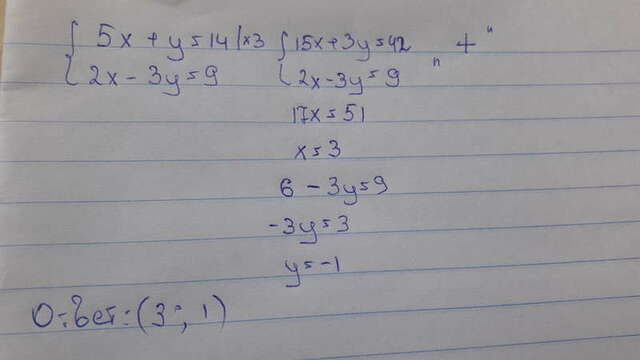 { 5x + y = 14 | ×3 { 15x + 3y = 42
{ 2x - 3y = 9 { 2x - 3y = 9 " + "
17x = 51
x = 3
6 - 3y = 9
-3y = 3
y = -1
Ответ: (3; 1)